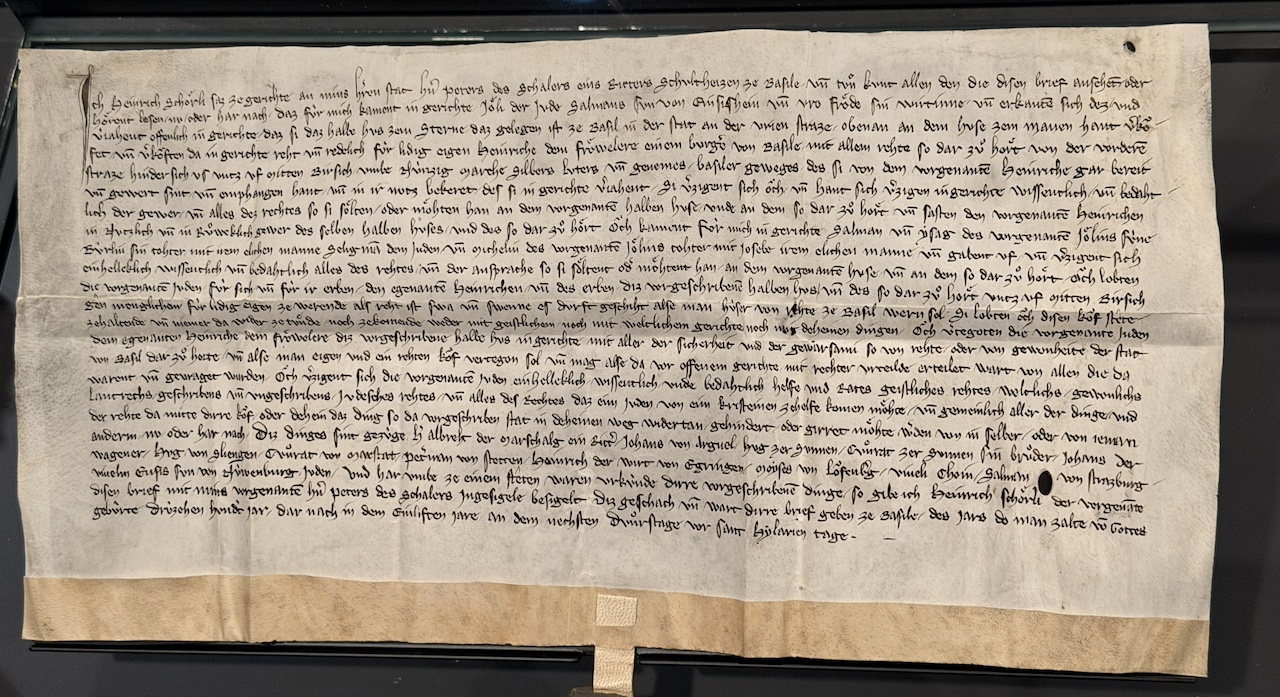 Ich Heinrich Schörli saz ze gerichte an mins hr̄en stat hn̄ Peters des Schalers eins Ritters Schultheizen ze Basile vn̄ tůn kunt allen den die disen brief ansehent oder
hörent lesen nu oder har nach daz für mich kament in gerichte Jöli der Jude Salmans sun von Ensisshein vn̄ vro Fröde sin wirtinne vn̄ erkante sich dez vnd
v̄iahent offenlich in gerichte daz si daz halbe hus zem Sterne daz gelegen ist ze Basil in der stat an der vrien straze obenan an dem huse zem manen hant v̄kö
fet vn̄ v̄köften da in gerichte reht vn̄ redelich für lidig eigen Heinriche dem fröwelere einem burg̾e von Basile mit allem rehte so dar zů hört von der vorderē
straze hinder sich us vntz vf mitten Birsich vmbe Nünzig marche silbers luters vn̄ genemes basiler geweges des si von dem vorgenantē Heinriche gar bereit
vn̄ gewert sint vn̄ emphangen hant vn̄ in ir nutz bekeret des si in gerichte v̄iahent Si v̄zigent sich öch vn̄ hant sich v̄zigen in gerichte wissentlich vn̄ bedaht
lich der gewer vn̄ alles dez rechtes so si sölten oder möhten han an dem vorgenantē halben huse vnde an dem so dar zů hört vn̄ sasten den vorgenantē Heinrichen
in Nutzlich vn̄ in Růweklich gewer des selben halben huses vnd des so dar zů hört Öch kament für mich in gerichte Salman vn̄ ysag des vorgenantē Jölins süne
sin tohter mit irem elichen manne Seligman dem Juden vn̄ Michelin des vorgenantē Jölins tohter mit Josebe irem elichen manne vn̄ gabent vf vn̄ v̄zigent sich
einhelleklich wissentlich vn̄ bedahtlich alles des rehtes vn̄ der ansprache so si söltent od̾ möhtent han an dem vorgenantē huse vn̄ an dem so dar zů hört Öch lobten
die vorgenantē Juden für sich vn̄ für ir erben den egenantē Heinrichen vn̄ des erben diz vorgeschribene halben hus vn̄ des so dar zů hört vntz vf mitten Birsich
gen menglichem für lidig eigen ze werende als reht ist swa vn̄ swenne es durft geschiht alse man hüser von rehte ze Basil wern sol Si lobten öch disen köf stete
zehaltende vn̄ niemer da wider ze tůnde noch zekomende weder mit geistlichem noch mit weltlichem gerichte noch mit deheinen dingen Öch v̄tegoten die vorgenantē Juden
dem egenanten Heinriche dem fröwelere diz vorgeschribene halbe hus in gerichte mit aller der sicherheit vnd der gewarsami so von rehte oder von gewonheite der stat
von Basil dar zů horte vn̄ alse man eigen vnd ein rehten köf vertegon sol vn̄ mag alse da vor offenem gerichte mit rechter vrteilde erteilet wart von allen die da
warent vn̄ gevraget wurden Öch v̄zigent sich die vorgenantē Juden einhelleklich wissentlich vnde bedahtlich helfe vnd Rates geistliches rehtes weltlichs gewonlichs
lantrechs geschribens vn̄ vngeschribens Jvdesches rehtes vn̄ alles des Rechtes daz ein Juden von ein kristeinen zehelfe komen möhte vn̄ gemeinlich aller der dinge vnd
der rehte da mitte dirre köf oder dehein daz ding so da vorgeschriben stat in deheinen weg widertan gehindert oder girret möhte w̾den von in selber oder von ieman
anderm nv oder har nach Diz dinges sint gezüge h̾ Albreht der Marschalg ein Ritt̾ Johans von Arguel Hug zer Sunnen Cůnrat zer Sunnen sin brůder Johans der
wagener Hug von Sliengen Cůnrat von Marstat Pet̾man von Stetten Heinrich der wirt von Egringen Moyses von Löfenbg̾ Viueli Choin Salman von Strazburg
viuelin Enfis sun von Nüwenburg Juden Vnd har vmbe ze einem steten waren vrkünde dirre vorgeschribene dinge so gibe ich Heinrich Schörli der vorgenāte
disen brief mit mins vorgenantē hn̄ Peters des Schalers Ingesigele besigelt Diz geschach vn̄ wart dirre brief geben ze Basile des Jars do man zalte vō Gottes
gebürte drüzehen hundert jar dar nach in dem Einliften jare an dem nechsten Dunrstage vor sant Hylarien tage